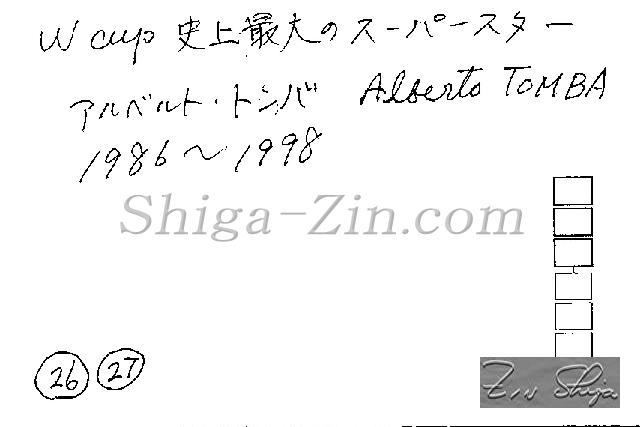 W cup 史上最大のスーパースター
アルベルト・トンバ Alberto TOMBA
1986〜1998
Shiga-Zin.com
26 27
Zin Shiga